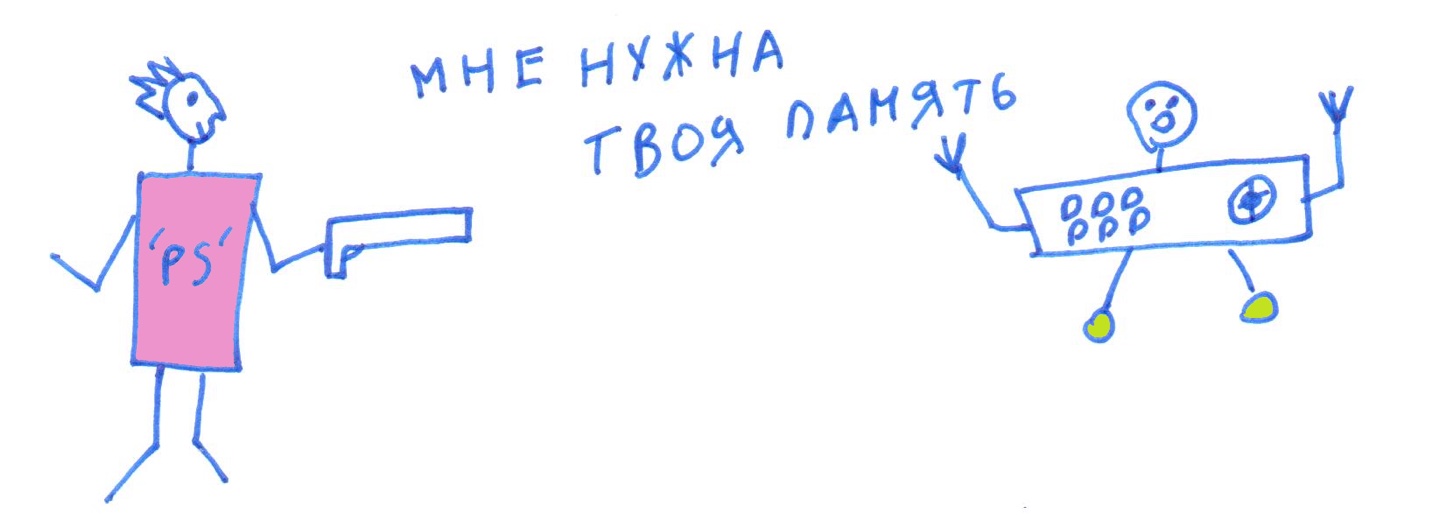 МНЕ НУЖНА
ТВОЯ ПАМЯТЬ
'PS'